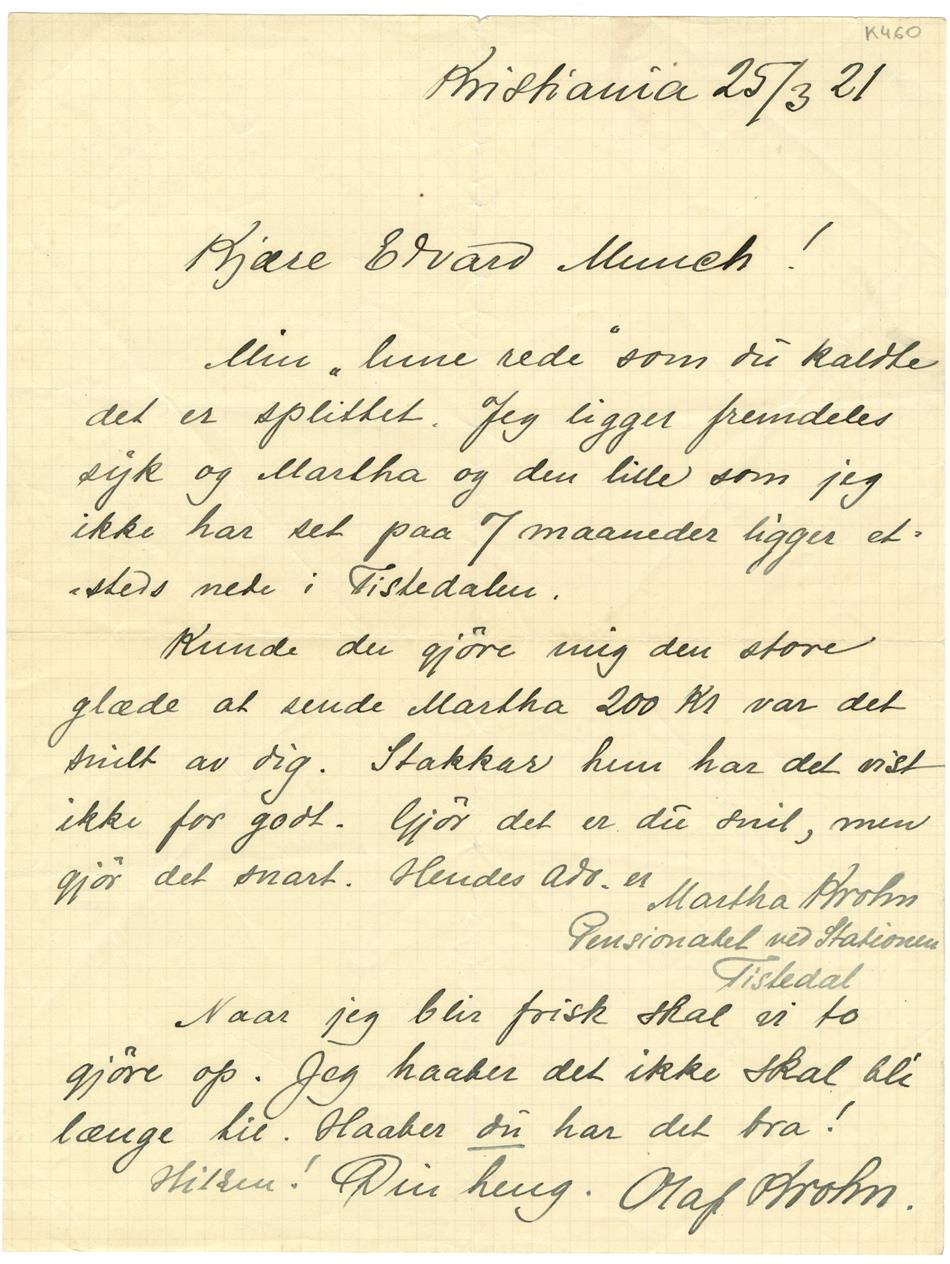 K460
Kristiania 25/3 21
Kjære Edvard Munch!
Min „lune rede“ som du kaldte
det er splittet. Jeg ligger fremdeles
syk og Martha og den lille som jeg
ikke har set paa 7 maaneder ligger et-
-steds nede i Tistedalen.
Kunde du gjöre mig den store
glæde at sende Martha 200 Kr var det
snilt av dig. Stakkar hun har det vist
ikke for godt. Gjör det er du snil, men
gjör det snart. Hendes adr. er
Martha Krohn
Pensionatet ved Stationen
Tistedal
Naar jeg blir frisk skal vi to
gjöre op. Jeg haaber det ikke skal bli
længe til. Haaber du har det bra!
Hilsen! Din heng. Olaf Krohn.